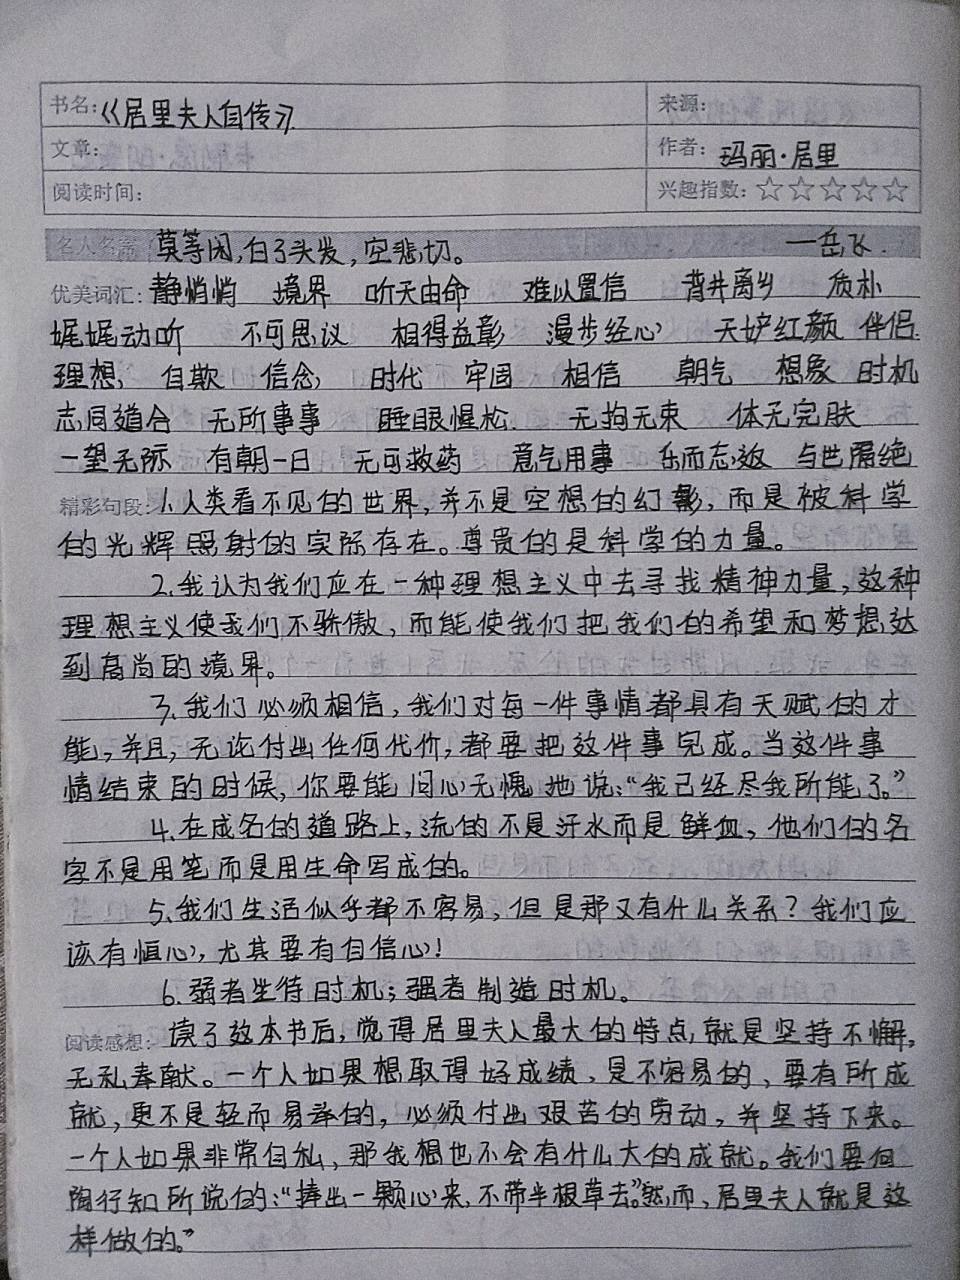 书名:《居里夫人自传》. 来源:
文章: 作者: 玛丽·居里
阅读时间: 兴趣指数: ☆☆☆☆☆
名人名言 莫等闲,白了头发,空悲切。 —岳飞.
优美词汇: 静悄悄 境界 听天由命 难以置信 背井离乡 质朴
娓娓动听 不可思议 相得益彰 漫步经心 天妒红颜 伴侣.
理想, 自欺 信念, 时代 牢固 相信 朝气 想象 时机
志同道合 无所事事 睡眼惺松. 无拘无束 体无完肤
一望无际 有朝一日 无可救药 意气用事 乐而忘返 与世隔绝
精彩句段: 1.人类看不见的世界,并不是空想的幻影,而是被科学
的光辉照射的实际存在。尊贵的是科学的力量。
2.我认为我们应在一种理想主义中去寻找精神力量,这种
理想主义使我们不骄傲,而能使我们把我们的希望和梦想达
到高尚的境界。
3.我们必须相信,我们对每一件事情都具有天赋的才
能,并且,无论付出任何代价,都要把这件事完成。当这件事
情结束的时候,你要能问心无愧地说:“我已经尽我所能了。”
4.在成名的道路上,流的不是汗水而是鲜血,他们的名
字不是用笔而是用生命写成的。
5.我们生活似乎都不容易,但是那又有什么关系?我们应
该有恒心,尤其要有自信心!
6.弱者坐待时机;强者制造时机。
阅读感想: 读了这本书后,觉得居里夫人最大的特点,就是坚持不懈,
无私奉献。一个人如果想取得好成绩,是不容易的,要有所成
就,更不是轻而易举的,必须付出艰苦的劳动,并坚持下来。
一个人如果非常自私,那我想也不会有什么大的成就。我们要向
陶行知所说的:“捧出一颗心来,不带半根草去。”然而,居里夫人就是这
样做的。”